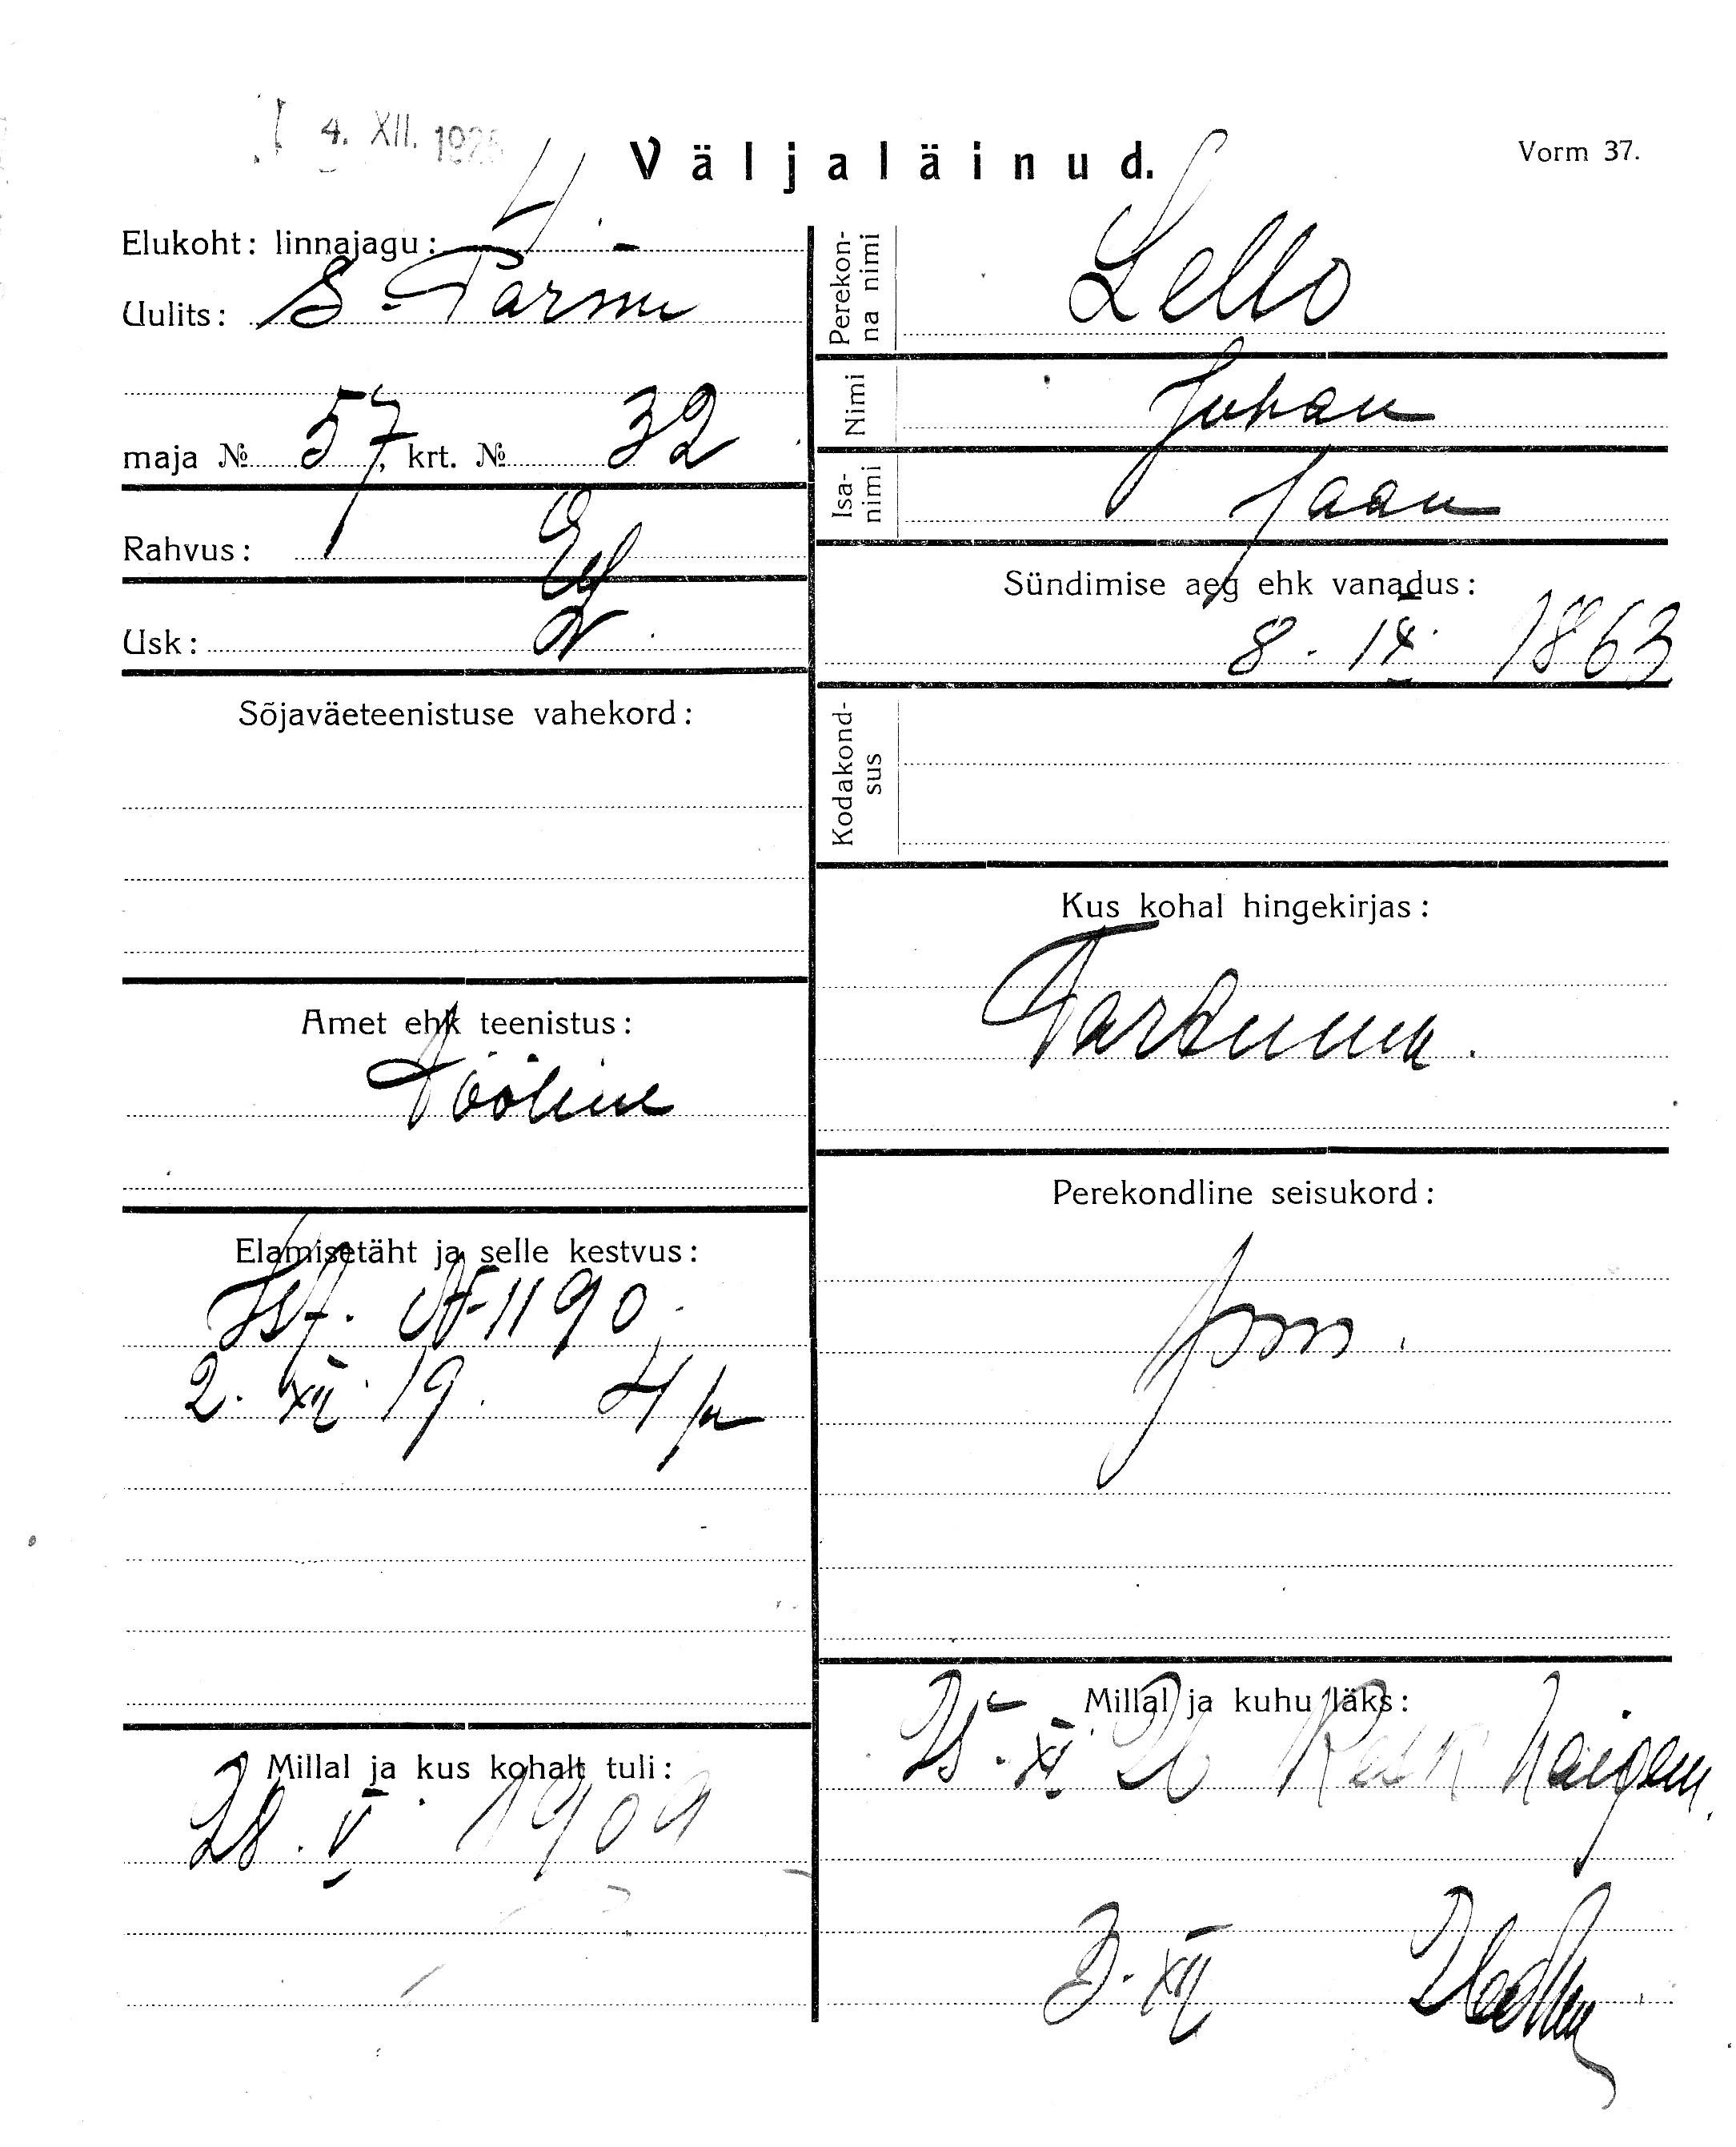 4. XII. 1926
Väljaläinud.
Vorm 37.
Elukoht: linnajagu: 4.
Uulits: S. Pärnu
maja № 57, krt. № 32
Rahvus: Est
Usk:
Sõjaväeteenistuse vahekord:
Amet ehk teenistus:
Tööline
Elamisetäht ja selle kestvus:
Ist. № 1190.
2. XII. 19. 4 jr
Millal ja kus kohalt tuli:
28. V. 1909
Perekonna nimi
Lello
Nimi
Juhan
Isanimi
Jaan
Sündimise aeg ehk vanadus:
8. IX. 1863
Kodakondsus
Kus kohal hingekirjas:
Perekondline seisukord:
Millal ja kuhu läks:
25. XI 26 Kesk haigem.
3. XII